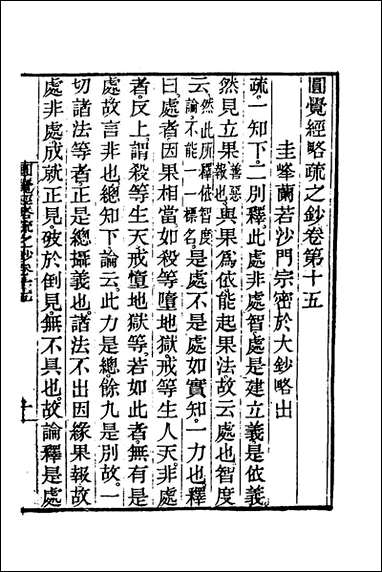 圓覺經略疏之鈔卷第十五
圭峯蘭若沙門宗密於大鈔略出
疏一知下二別釋此處非處智處是建立義是依義
然見立果善惡報也與果爲依能起果法故云處也智度
云然此所釋依智度論不能一一標名是處不是處如實知一力也釋
曰處者因果相當如殺等墮地獄戒等生人天非處
者反上謂殺等生天戒墮地獄等若如此者無有是
處故言非也總知下論云此力是總餘九是別故一
切諸法等者正是總義攝也諸法不出因緣果報故
處非處成就正見破於倒見無不具也故論釋是處
圓覺經略疏之鈔卷十五